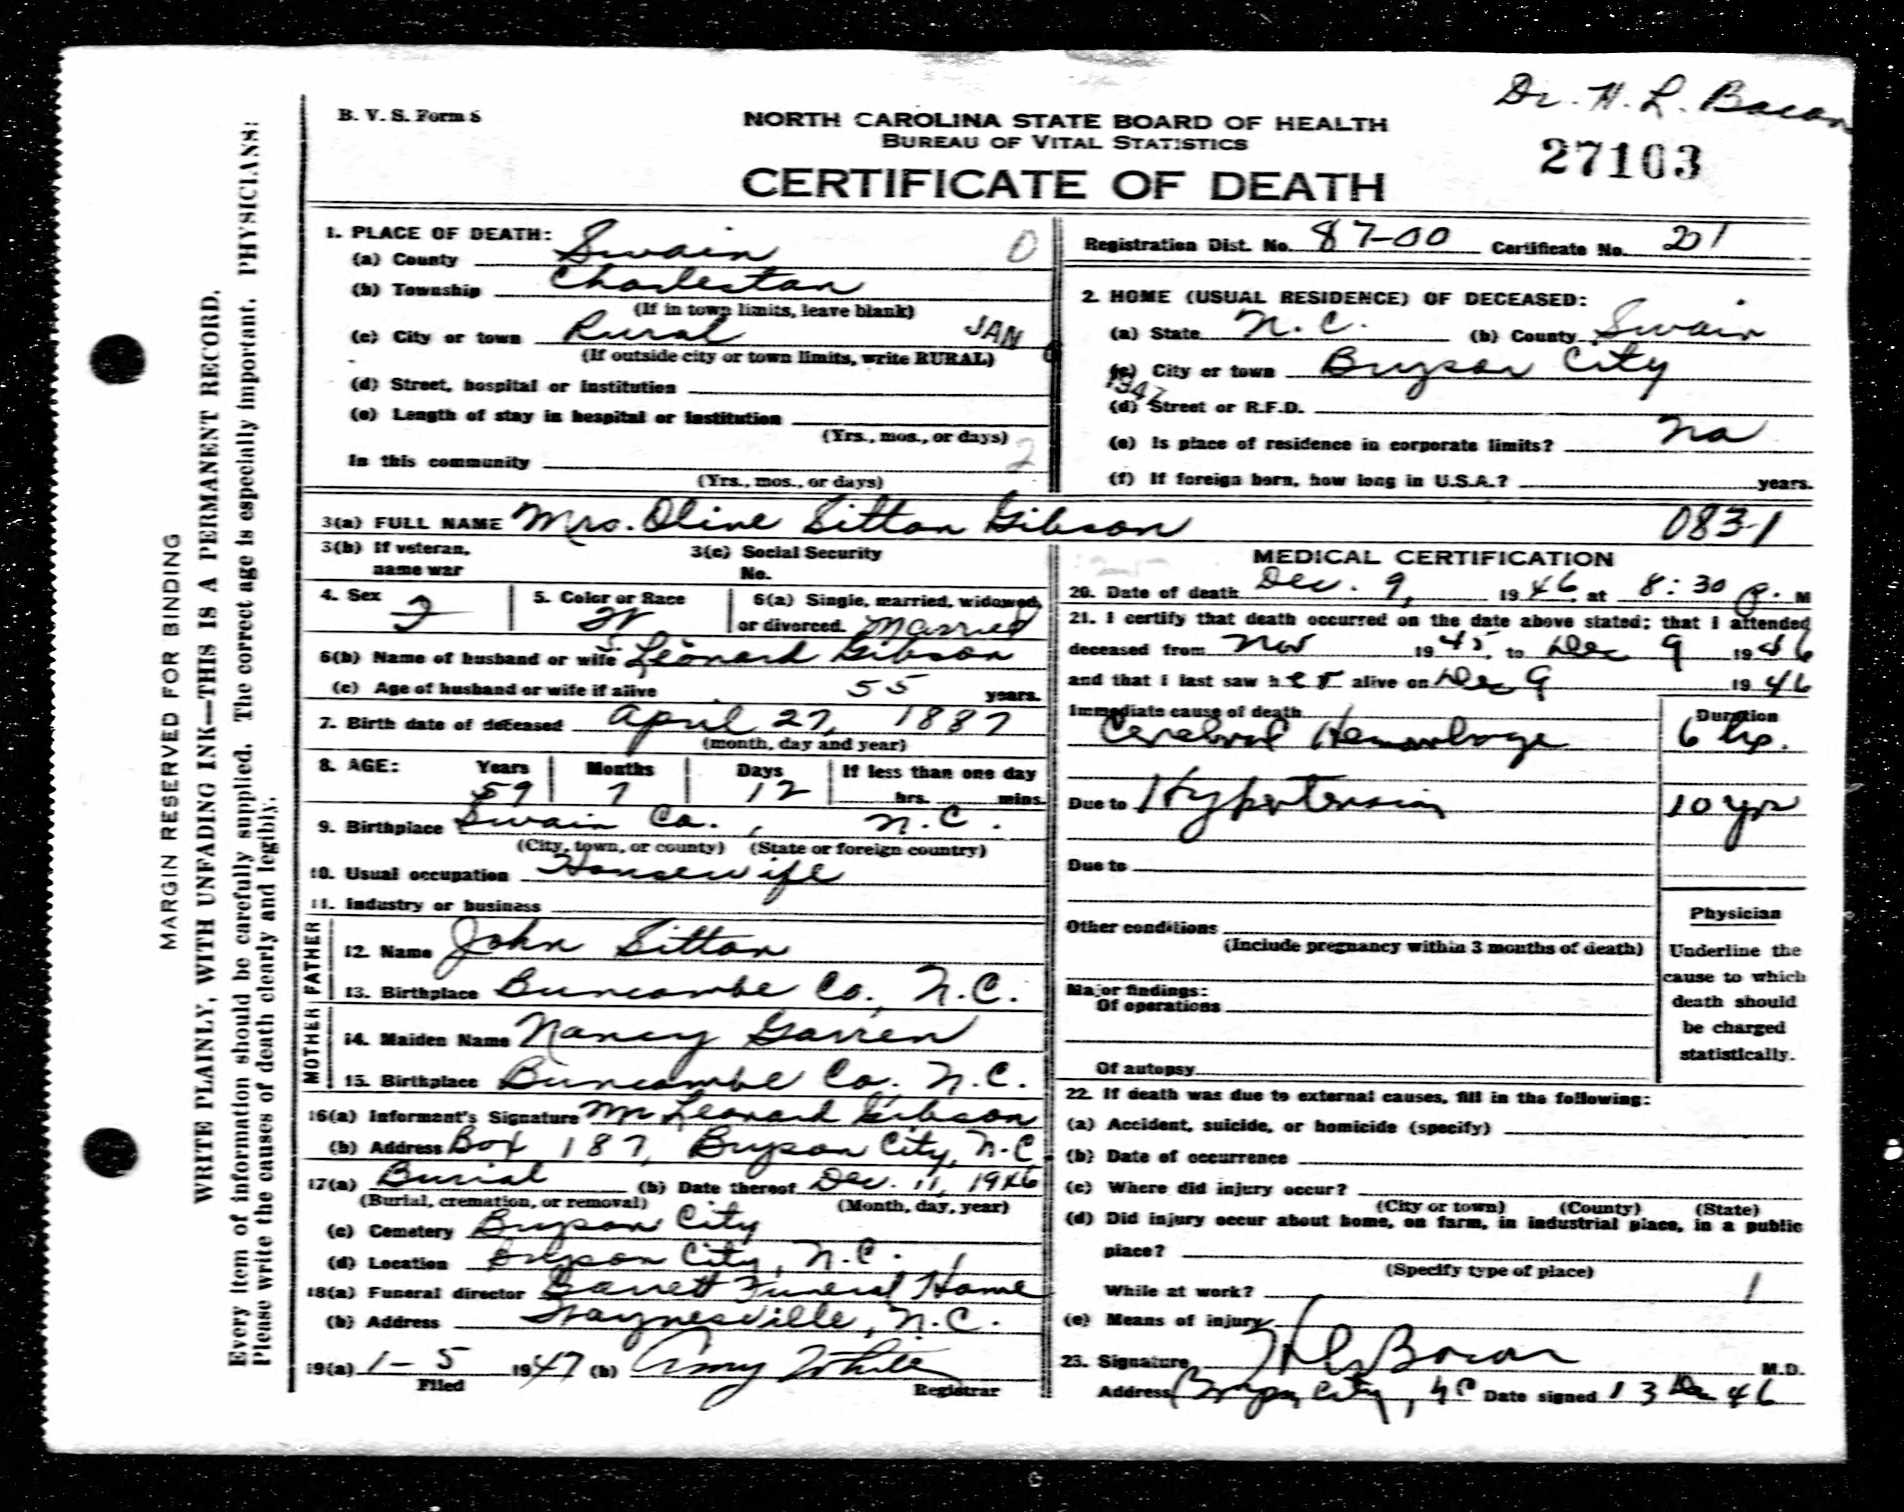 Dr. H. L. Bacon
B. V. S. Form 8
NORTH CAROLINA STATE BOARD OF HEALTH
BUREAU OF VITAL STATISTICS
27103
CERTIFICATE OF DEATH
MARGIN RESERVED FOR BINDING
WRITE PLAINLY, WITH UNFADING INK—THIS IS A PERMANENT RECORD.
Every item of information should be carefully supplied. The correct age is especially important. PHYSICIANS:
Please write the causes of death clearly and legibly.
1. PLACE OF DEATH:
(a) County Swain 0
(b) Township Charleston
(If in town limits, leave blank)
(c) City or town Rural JAN
(If outside city or town limits, write RURAL)
(d) Street, hospital or institution
(e) Length of stay in hospital or institution
(Yrs., mos., or days)
In this community 2
(Yrs., mos., or days)
Registration Dist. No. 87-00 Certificate No. 201
2. HOME (USUAL RESIDENCE) OF DECEASED:
(a) State N. C. (b) County Swain
(c) City or town Bryson City
1947
(d) Street or R.F.D.
(e) Is place of residence in corporate limits? No
(f) If foreign born, how long in U.S.A.? years.
3(a) FULL NAME Mrs. Oline Sitton Gibson 083-1
3(b) If veteran, name war
3(c) Social Security No.
4. Sex F
5. Color or Race W
6(a) Single, married, widowed, or divorced. Married
6(b) Name of husband or wife Leonard Gibson
(c) Age of husband or wife if alive 55 years.
7. Birth date of deceased April 27, 1887
(month, day and year)
8. AGE: Years Months Days If less than one day
59 7 12 hrs. mins.
9. Birthplace Swain Co., N.C.
(City, town, or county) (State or foreign country)
10. Usual occupation Housewife
11. Industry or business
FATHER
12. Name John Sitton
13. Birthplace Buncombe Co., N.C.
MOTHER
14. Maiden Name Nancy Garren
15. Birthplace Buncombe Co., N.C.
16(a) Informant's Signature Mr Leonard Gibson
(b) Address Box 187, Bryson City, N.C.
17(a) Burial (b) Date thereof Dec. 11, 1946
(Burial, cremation, or removal) (Month, day, year)
(c) Cemetery Bryson City
(d) Location Bryson City, N.C.
18(a) Funeral director Garrett Funeral Home
(b) Address Waynesville, N.C.
19(a) 1-5 1947 (b) Amy White
Filed Registrar
MEDICAL CERTIFICATION
20. Date of death Dec. 9, 1946 at 8:30 P. M
21. I certify that death occurred on the date above stated; that I attended
deceased from Nov 1945, to Dec 9 1946
and that I last saw her alive on Dec 9 1946
Immediate cause of death Duration
Cerebral Hemorrhage 6 hrs.
Due to Hypertension 10 yr
Due to
Other conditions
(Include pregnancy within 3 months of death)
Major findings:
Of operations
Of autopsy
Physician
Underline the
cause to which
death should
be charged
statistically.
22. If death was due to external causes, fill in the following:
(a) Accident, suicide, or homicide (specify)
(b) Date of occurrence
(c) Where did injury occur?
(City or town) (County) (State)
(d) Did injury occur about home, on farm, in industrial place, in a public
place?
(Specify type of place)
While at work? 1
(e) Means of injury
23. Signature H L Bacon M.D.
Address Bryson City, NC Date signed 13 Dec 46